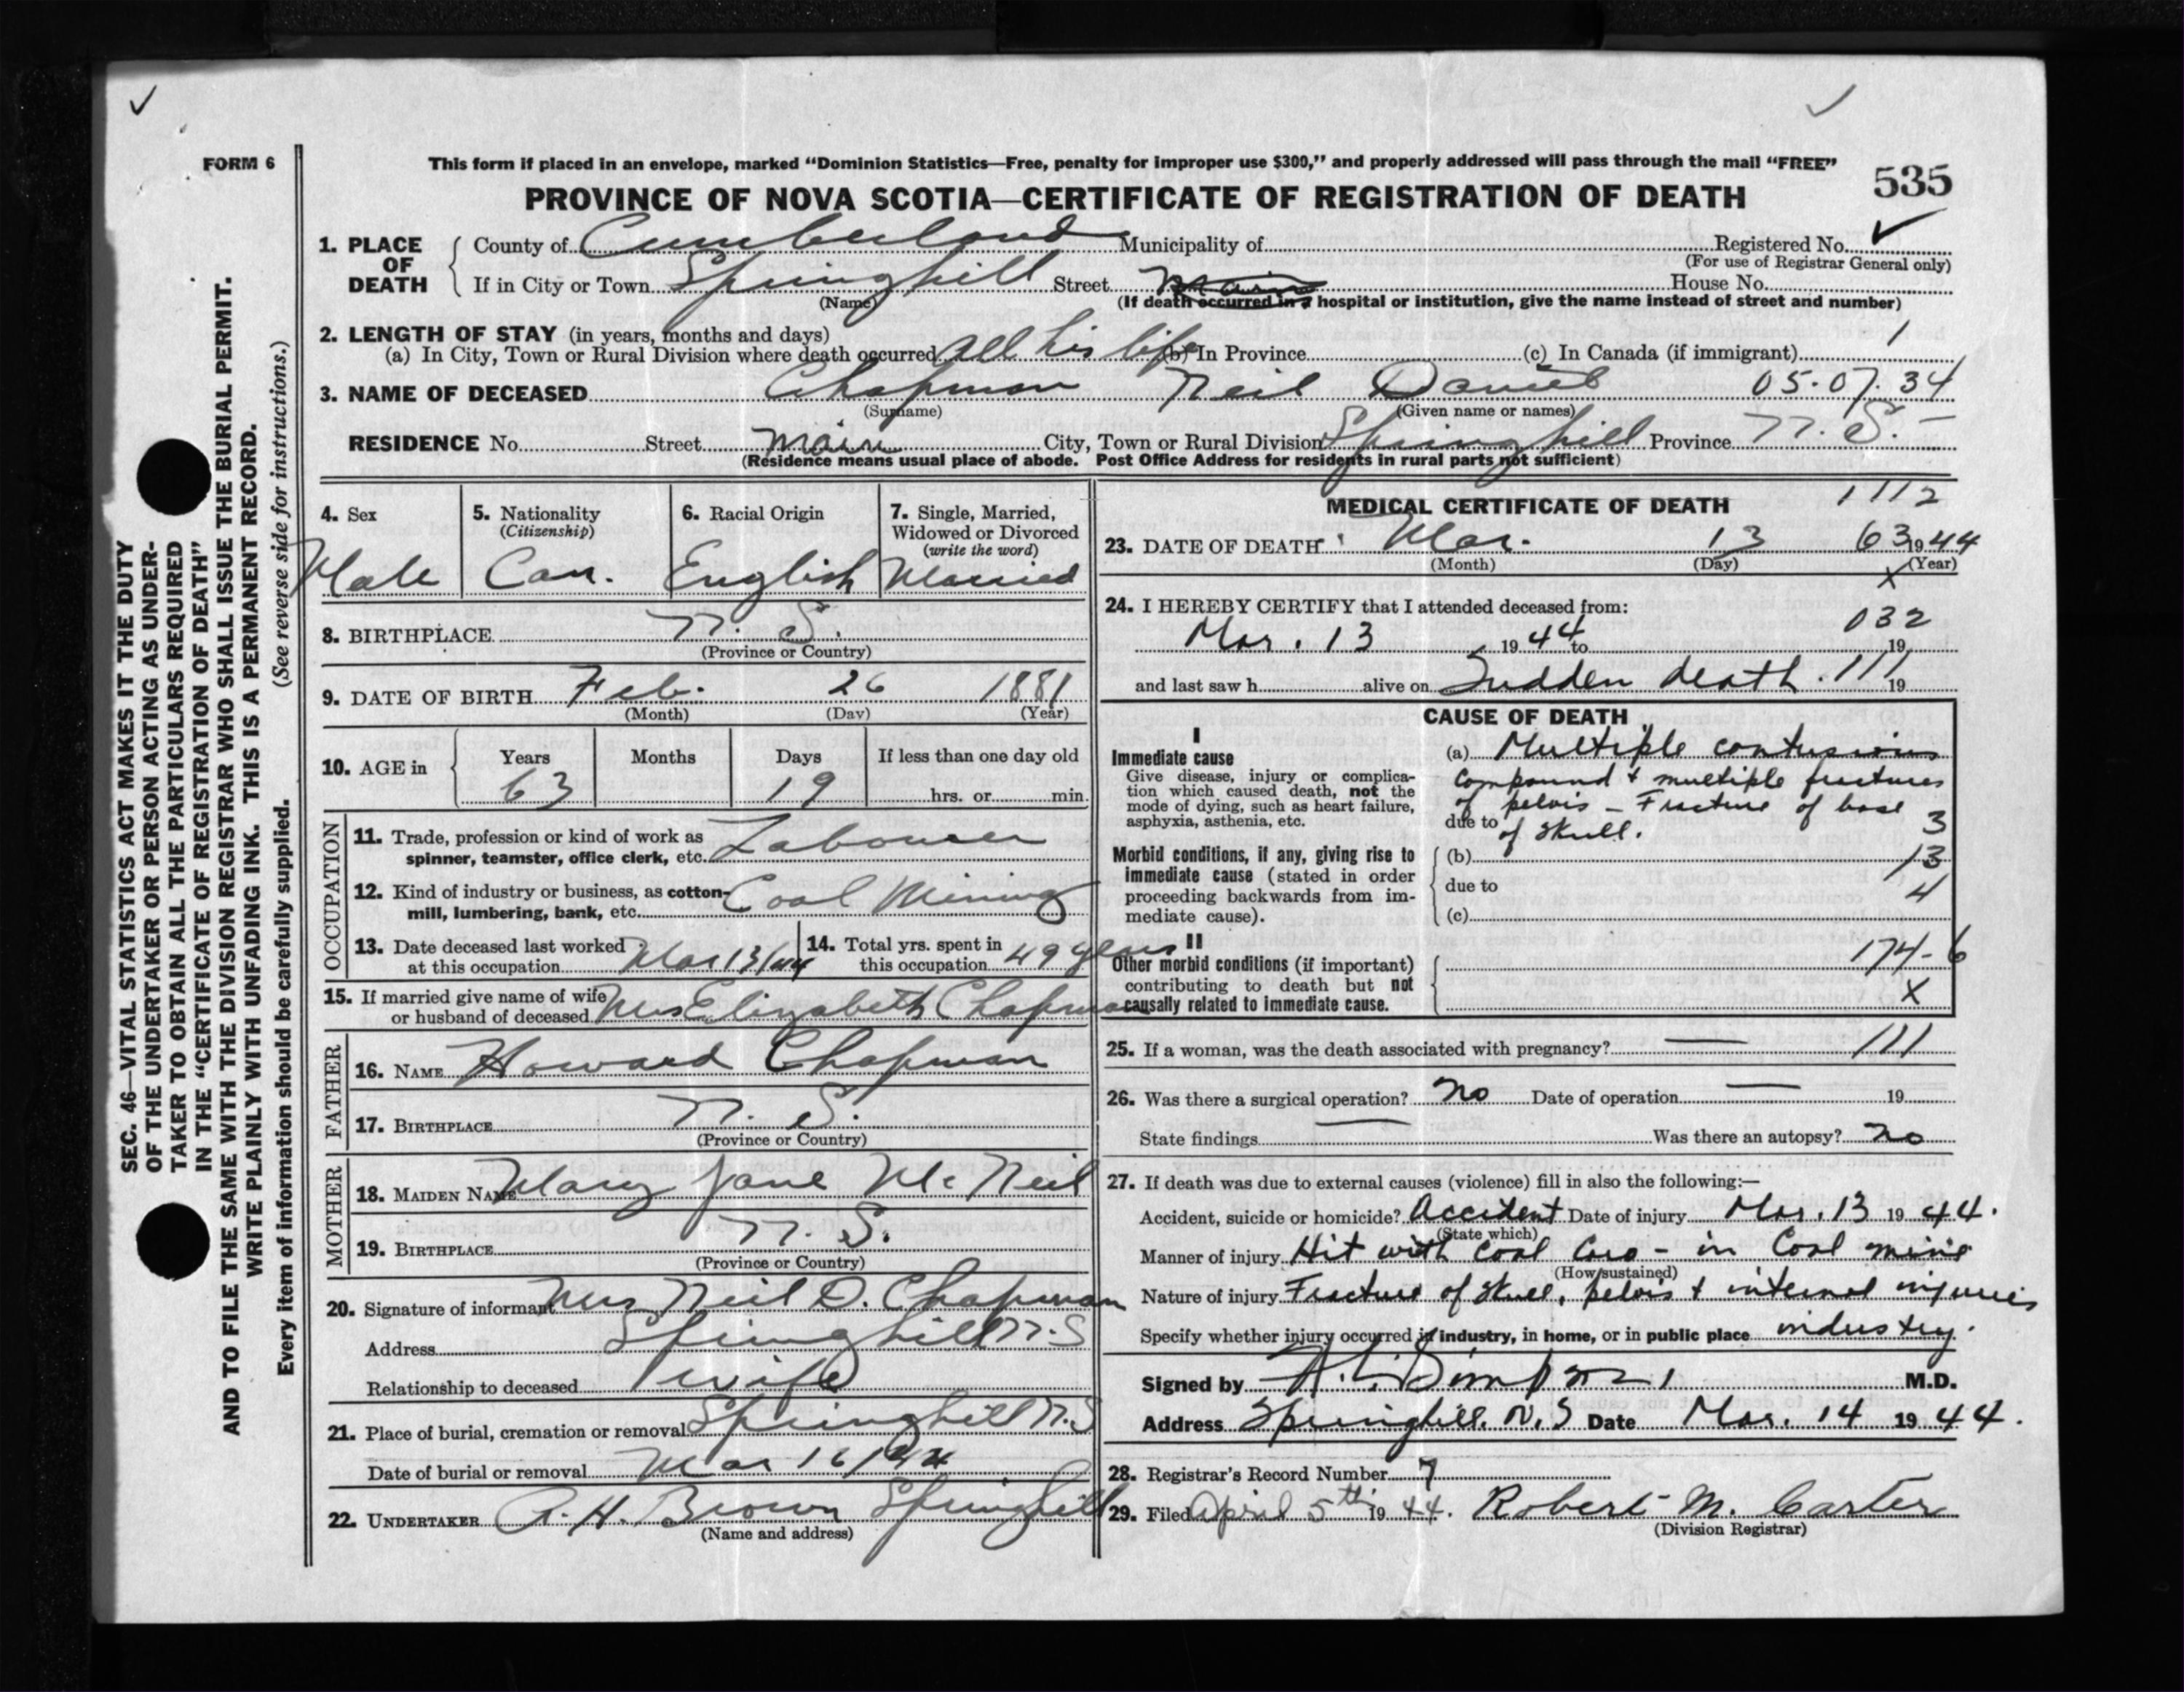 FORM 6
This form if placed in an envelope, marked "Dominion Statistics—Free, penalty for improper use $300," and properly addressed will pass through the mail "FREE"
PROVINCE OF NOVA SCOTIA—CERTIFICATE OF REGISTRATION OF DEATH
535
SEC. 46—VITAL STATISTICS ACT MAKES IT THE DUTY
OF THE UNDERTAKER OR PERSON ACTING AS UNDER-
TAKER TO OBTAIN ALL THE PARTICULARS REQUIRED
IN THE "CERTIFICATE OF REGISTRATION OF DEATH"
AND TO FILE THE SAME WITH THE DIVISION REGISTRAR WHO SHALL ISSUE THE BURIAL PERMIT.
WRITE PLAINLY WITH UNFADING INK. THIS IS A PERMANENT RECORD.
Every item of information should be carefully supplied. (See reverse side for instructions.)
1. PLACE OF DEATH County of Cumberland Municipality of Registered No.
(For use of Registrar General only)
If in City or Town Springhill Street Main House No.
(Name) (If death occurred in a hospital or institution, give the name instead of street and number)
2. LENGTH OF STAY (in years, months and days) 1
(a) In City, Town or Rural Division where death occurred All his life (b) In Province (c) In Canada (if immigrant)
3. NAME OF DECEASED Chapman Neil Daniel 05.07.34
(Surname) (Given name or names)
RESIDENCE No. Street Main City, Town or Rural Division Springhill Province N. S.
(Residence means usual place of abode. Post Office Address for residents in rural parts not sufficient)
4. Sex
Male
5. Nationality
(Citizenship)
Can.
6. Racial Origin
English
7. Single, Married,
Widowed or Divorced
(write the word)
Married
8. BIRTHPLACE N. S.
(Province or Country)
9. DATE OF BIRTH Feb. 26 1881
(Month) (Day) (Year)
10. AGE in Years Months Days If less than one day old
63 19 hrs. or min.
OCCUPATION
11. Trade, profession or kind of work as
spinner, teamster, office clerk, etc. Labourer
12. Kind of industry or business, as cotton-
mill, lumbering, bank, etc. Coal Mining
13. Date deceased last worked
at this occupation Mar 13/44
14. Total yrs. spent in
this occupation 49 years
15. If married give name of wife
or husband of deceased Mrs Elizabeth Chapman
FATHER
16. NAME Howard Chapman
17. BIRTHPLACE N. S.
(Province or Country)
MOTHER
18. MAIDEN NAME Mary Jane McNeil
19. BIRTHPLACE N. S.
(Province or Country)
20. Signature of informant Mrs Neil D. Chapman
Address Springhill N.S
Relationship to deceased Wife
21. Place of burial, cremation or removal Springhill N.S
Date of burial or removal Mar 16/44
22. UNDERTAKER A. H. Brown Springhill
(Name and address)
MEDICAL CERTIFICATE OF DEATH 1112
23. DATE OF DEATH Mar. 13 63 1944
(Month) (Day) (Year)
X
24. I HEREBY CERTIFY that I attended deceased from:
032
Mar. 13 1944 to 19
and last saw h alive on Sudden death. 111 19
CAUSE OF DEATH
I
Immediate cause
Give disease, injury or complica-
tion which caused death, not the
mode of dying, such as heart failure,
asphyxia, asthenia, etc.
(a) Multiple contusions
compound & multiple fractures
of pelvis - Fracture of base
due to of skull. 3
Morbid conditions, if any, giving rise to
immediate cause (stated in order
proceeding backwards from im-
mediate cause).
(b) 13
due to 4
(c)
II
Other morbid conditions (if important)
contributing to death but not
causally related to immediate cause.
174-6
X
25. If a woman, was the death associated with pregnancy? — 111
26. Was there a surgical operation? No Date of operation — 19
State findings — Was there an autopsy? No
27. If death was due to external causes (violence) fill in also the following:—
Accident, suicide or homicide? Accident Date of injury Mar. 13 1944.
(State which)
Manner of injury Hit with coal cars - in Coal mine
(How sustained)
Nature of injury Fracture of skull, pelvis & internal injuries
Specify whether injury occurred in industry, in home, or in public place industry.
Signed by Simpson M.D.
Address Springhill. N.S Date Mar. 14 1944.
28. Registrar's Record Number 7
29. Filed April 5th 1944. Robert M. Carter
(Division Registrar)